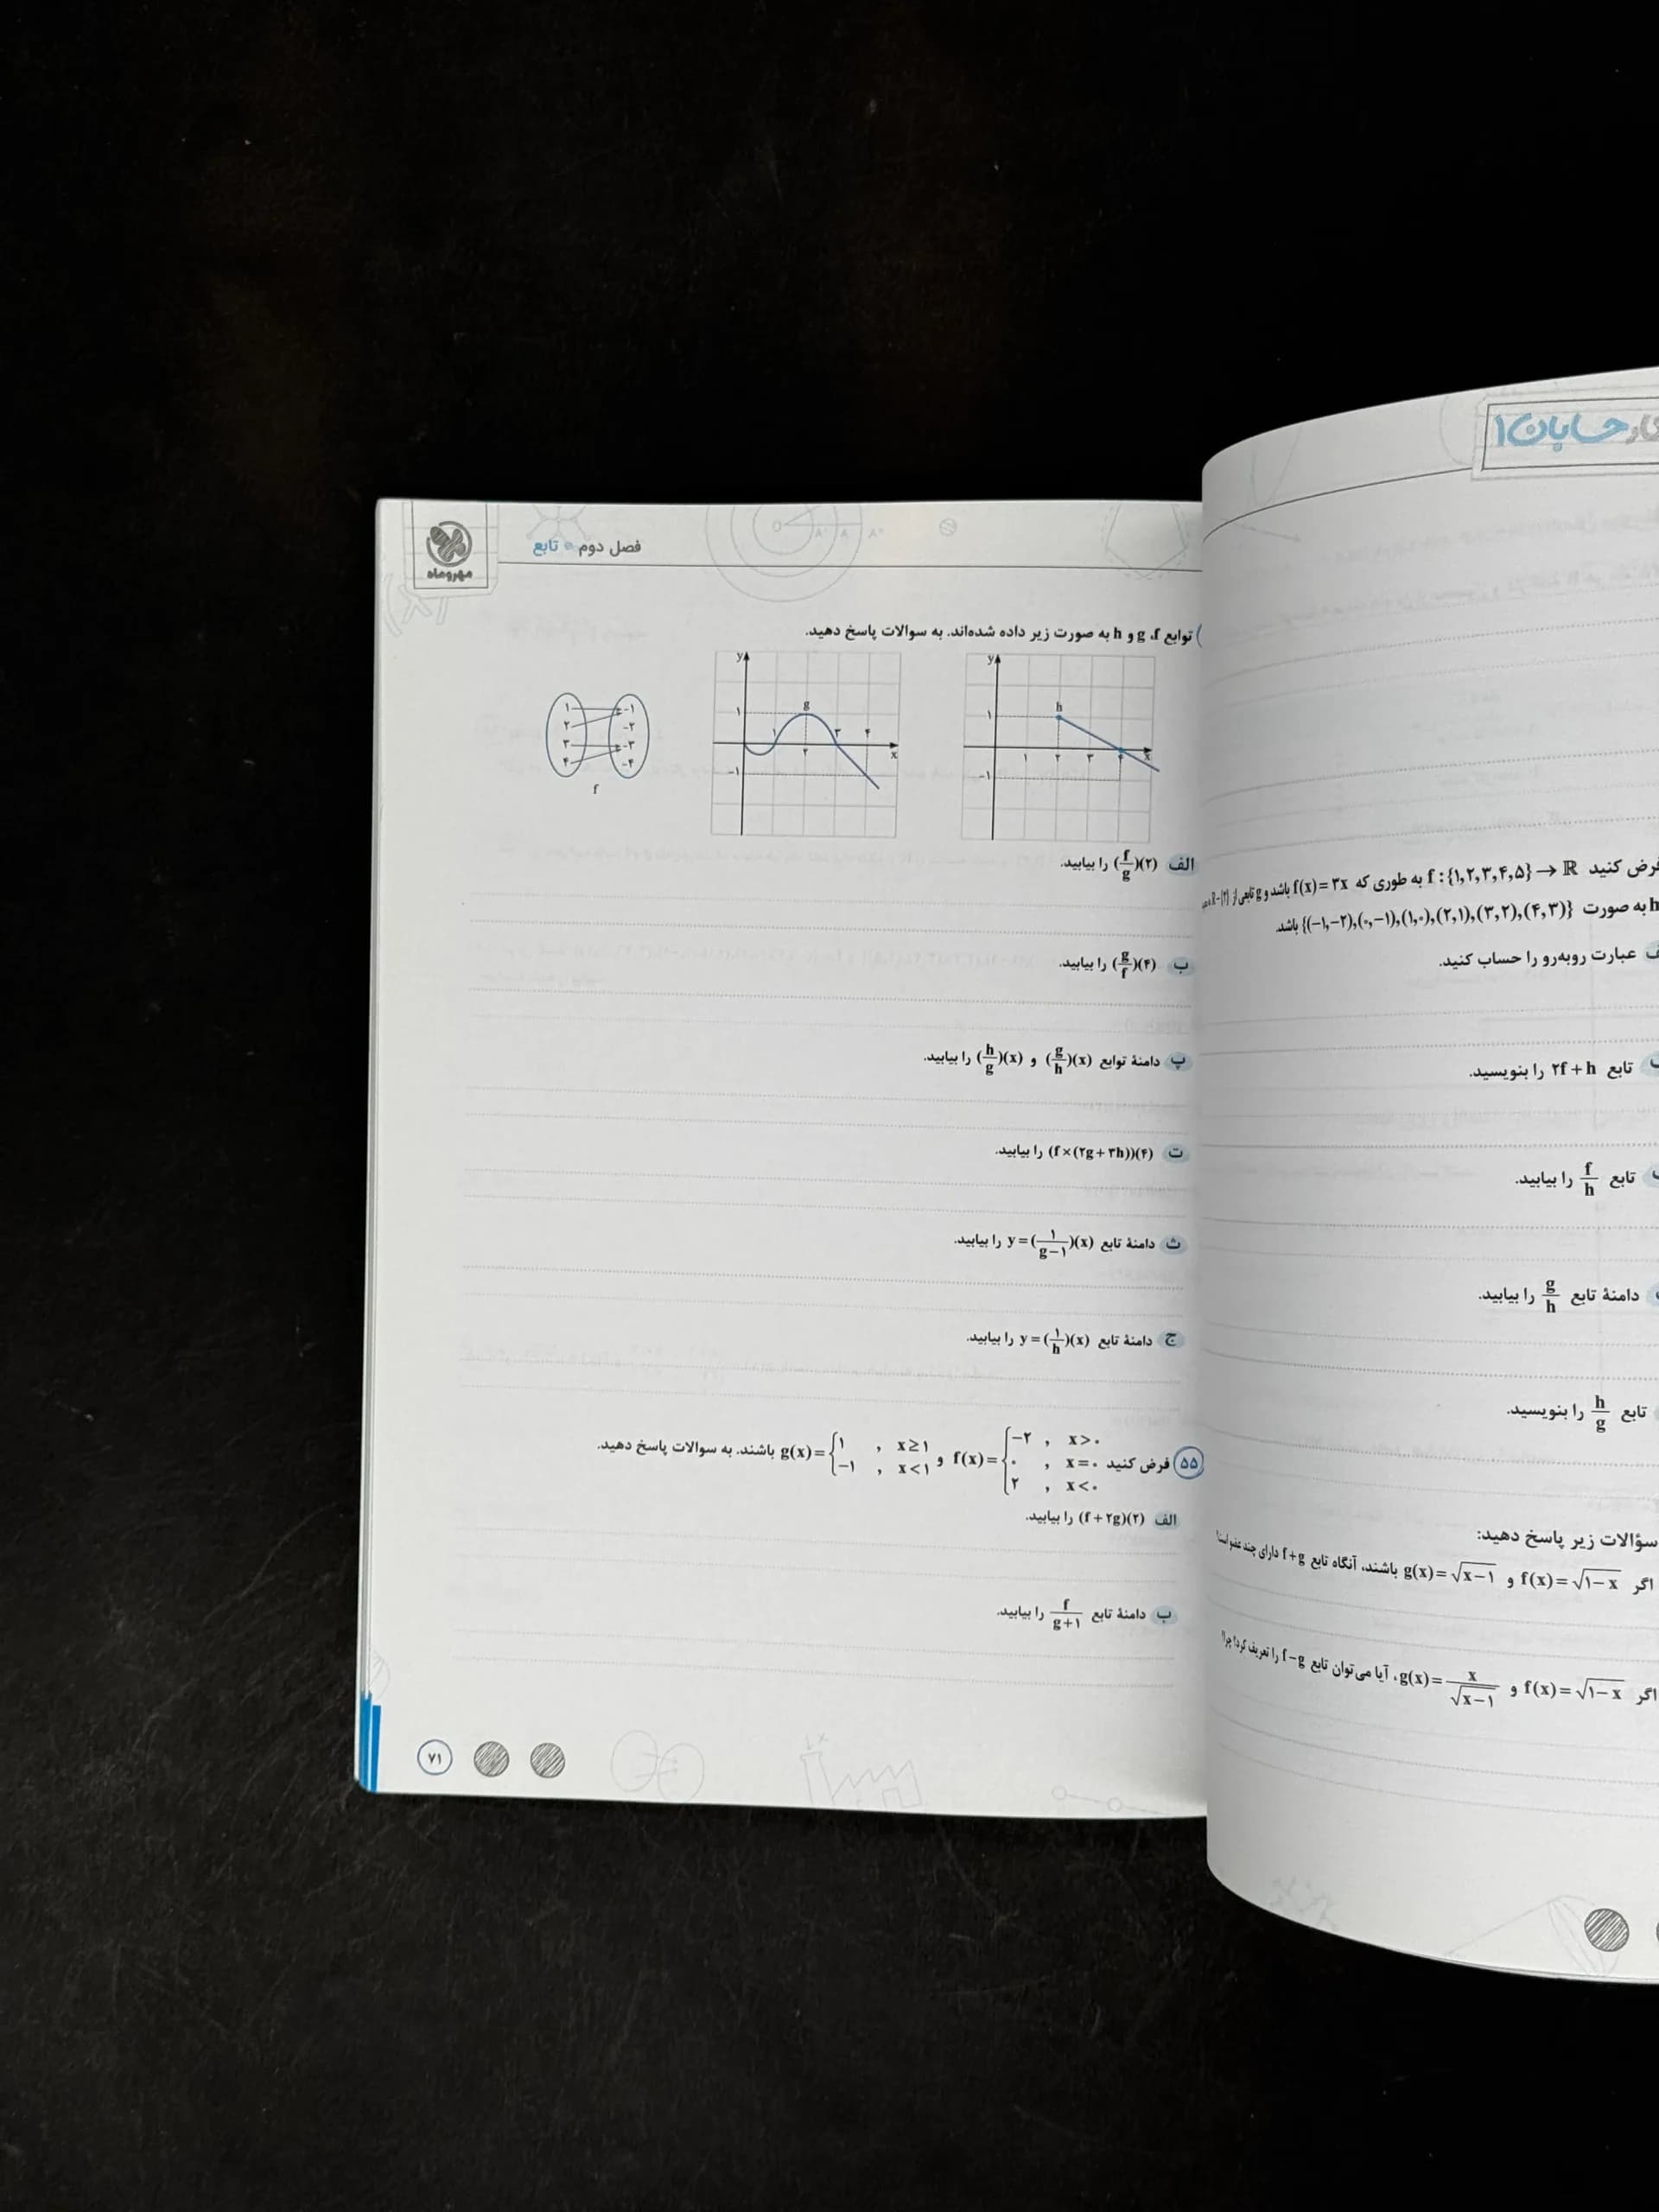 حسابان ۱
فرض کنید f : {۱,۲,۳,۴,۵} → ℝ به طوری که f(x) = ۳x باشد و g تابعی از
h به صورت {(−۱,−۲),(۰,−۱),(۱,۰),(۲,۱),(۳,۲),(۴,۳)} باشد.
عبارت روبه‌رو را حساب کنید.
تابع ۲f + h را بنویسید.
تابع f/h را بیابید.
دامنهٔ تابع g/h را بیابید.
تابع h/g را بنویسید.
سؤالات زیر پاسخ دهید:
اگر f(x) = √(۱−x) و g(x) = √(x−۱) باشند، آنگاه تابع f+g دارای چند عضو است؟
اگر f(x) = √(۱−x) و g(x) = x/√(x−۱)، آیا می‌توان تابع f−g را تعریف کرد؟ چرا؟
مهروماه
فصل دوم • تابع
توابع f، g و h به صورت زیر داده شده‌اند. به سوالات پاسخ دهید.
y
h
۱
۱ ۲ ۳ ۴ x
−۱
y
g
۱
۱ ۲ ۳ ۴ x
−۱
۱ −۱
۲ −۲
۳ −۳
۴ −۴
f
الف (f/g)(۲) را بیابید.
ب (g/f)(۴) را بیابید.
پ دامنهٔ توابع (g/h)(x) و (h/g)(x) را بیابید.
ت (f×(۲g+۳h))(۴) را بیابید.
ث دامنهٔ تابع y = (۱/(g−۱))(x) را بیابید.
ج دامنهٔ تابع y = (۱/h)(x) را بیابید.
۵۵ فرض کنید f(x) = {−۲ , x>۰ ; ۰ , x=۰ ; ۲ , x<۰ و g(x) = {۱ , x≥۱ ; −۱ , x<۱ باشند. به سوالات پاسخ دهید.
الف (f+۲g)(۲) را بیابید.
ب دامنهٔ تابع f/(g+۱) را بیابید.
۷۱